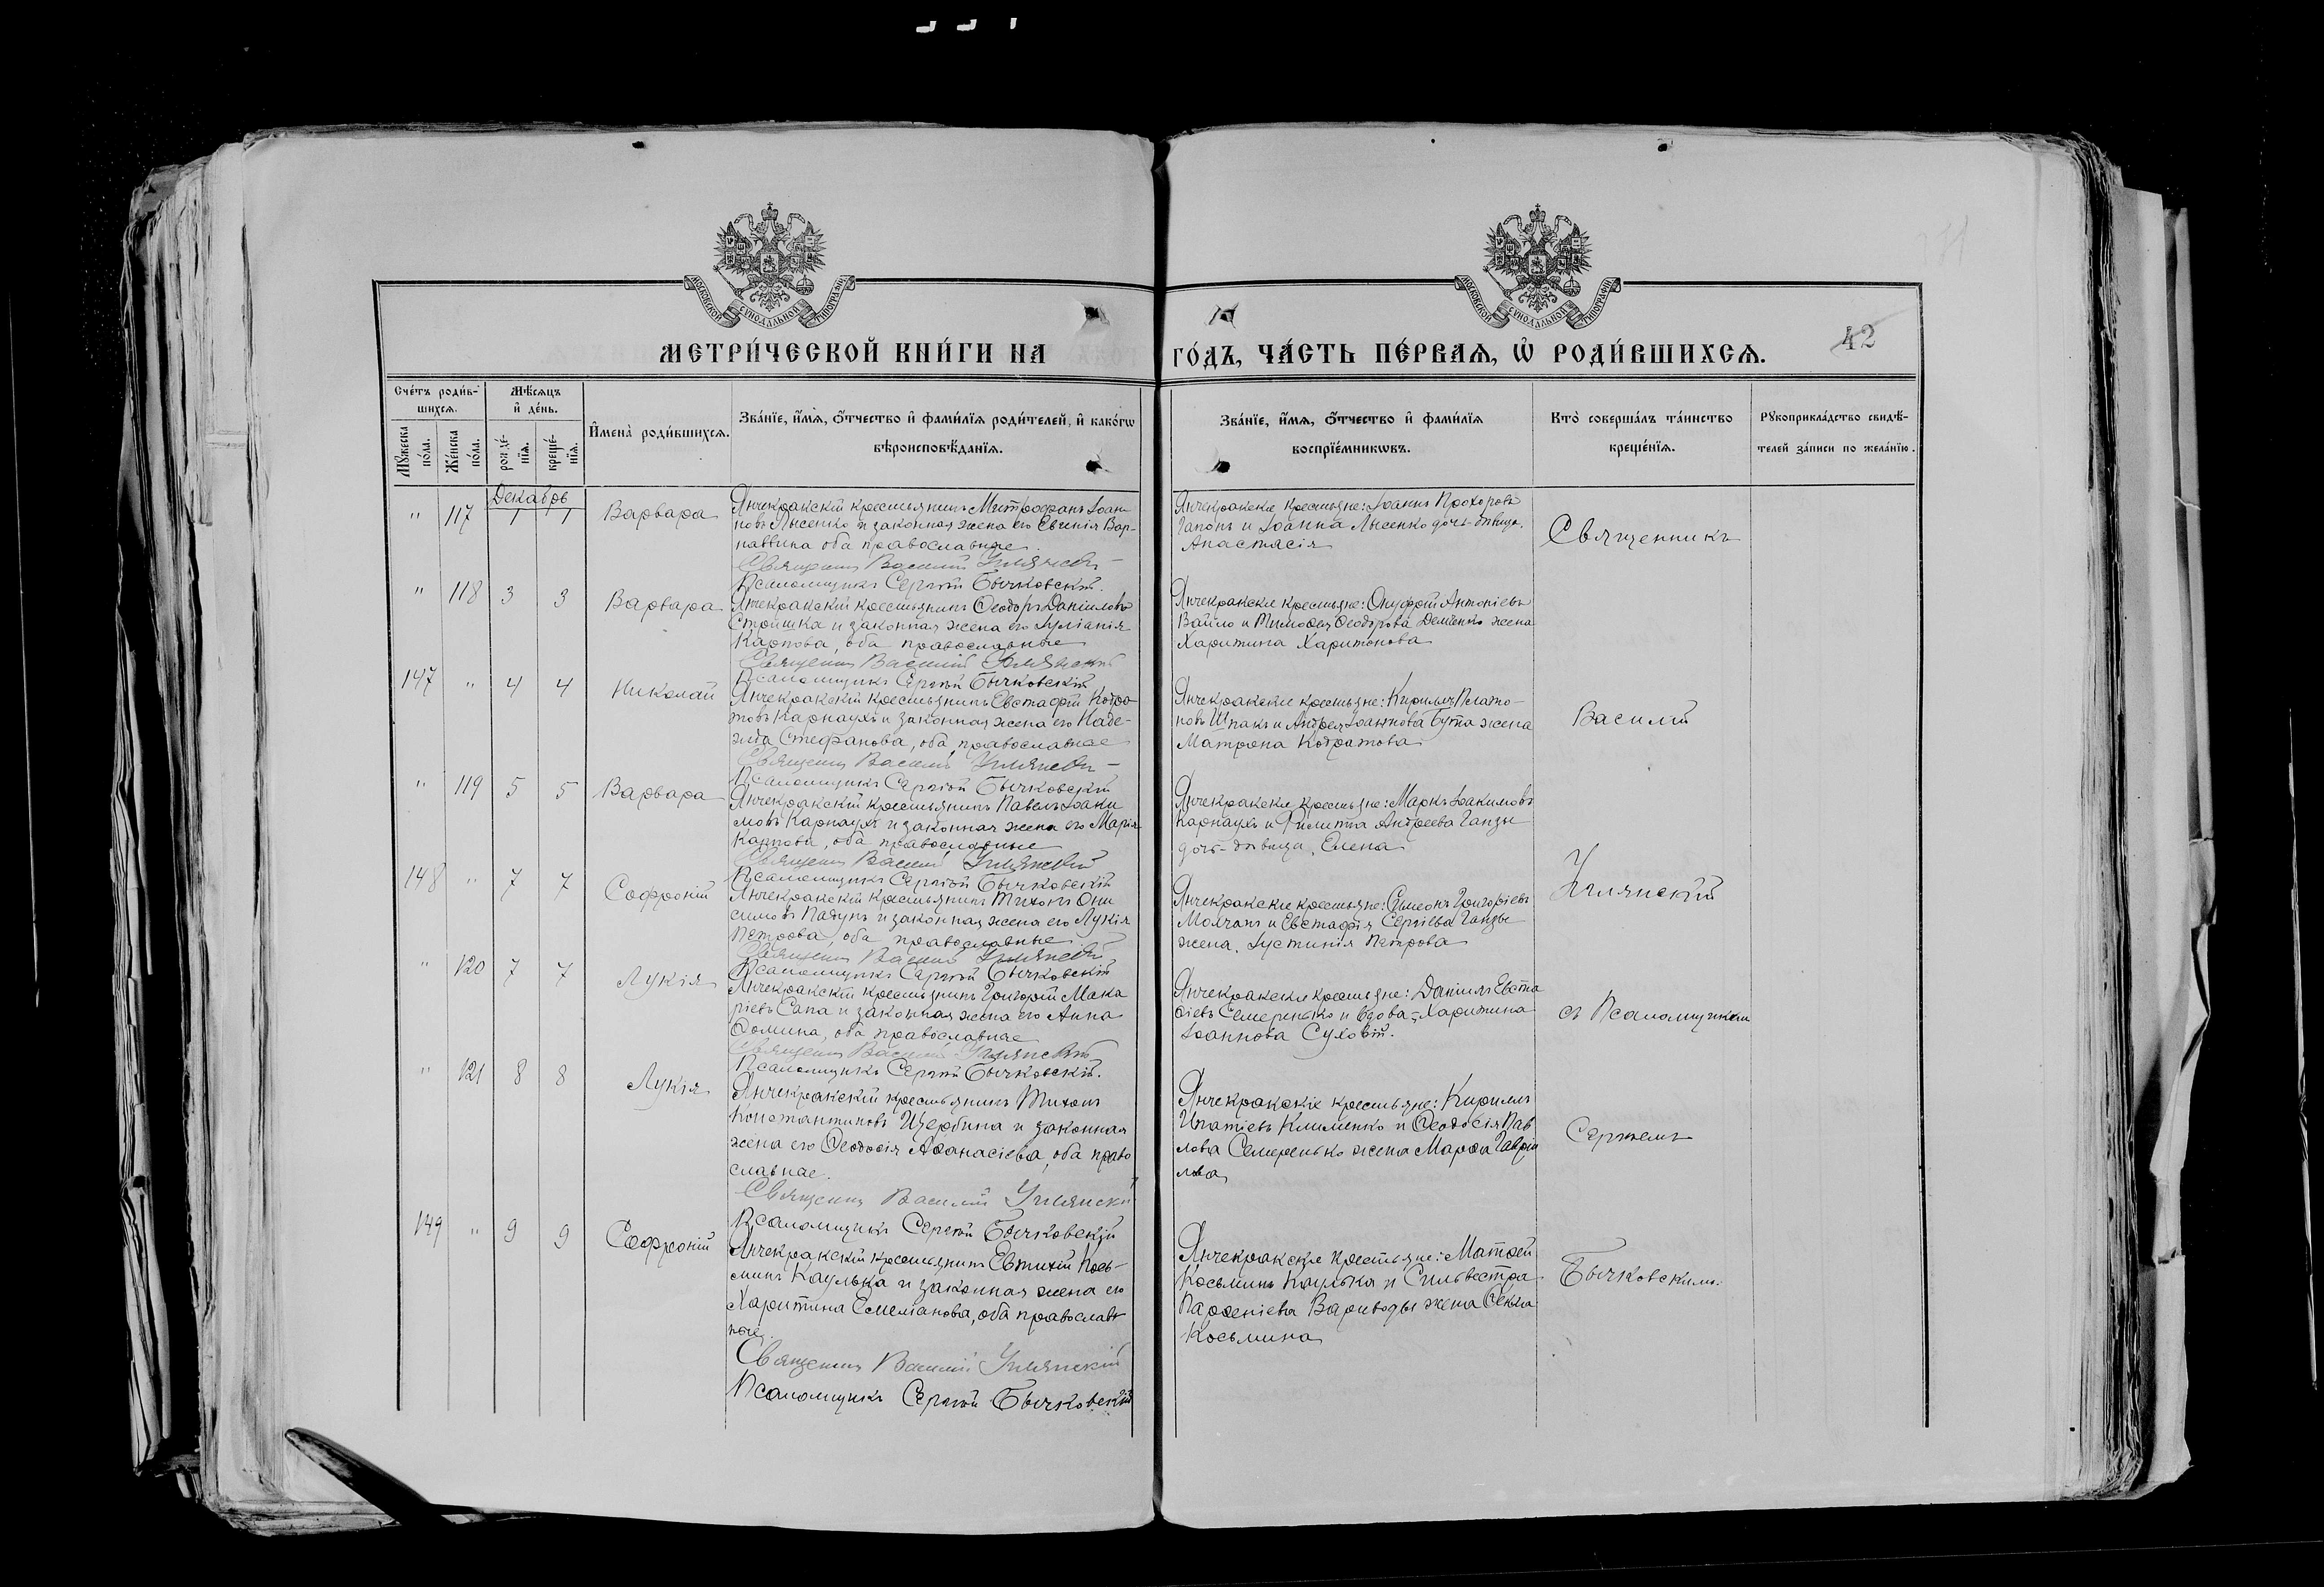 МОСКОВСКОЙ СΥНОДАЛЬНОЙ ТИПОГРАФІИ
МОСКОВСКОЙ СΥНОДАЛЬНОЙ ТИПОГРАФІИ
42
МЕТРИ́ЧЕСКОЙ КНИ́ГИ НА ГО́ДЪ, ЧА́СТЬ ПЕ́РВАѦ, Ѡ҆ РОДИ́ВШИХСѦ.
Сче́тъ роди́в-
шихсѧ.
Мѣ́сѧцъ
и҆ де́нь.
Мꙋ́жеска по́ла.
Же́нска по́ла.
рожде́-
нїѧ.
креще́-
нїѧ.
И҆мена̀ роди́вшихсѧ.
Зва́нїе, и҆́мѧ, ѻ҆́тчество и҆ фами́лїѧ роди́телей, и҆ како́гѡ
вѣроисповѣ́данїѧ.
Зва́нїе, и҆́мѧ, ѻ҆́тчество и҆ фами́лїѧ
воспрїе́мникѡвъ.
Кто̀ соверша́лъ та́инство
креще́нїѧ.
Рꙋкоприкла́дство свидѣ́-
телей за́писи по жела́нїю.
Декабрь
" 117 1 1 Варвара
Янчекракскій крестьянинъ Митрофанъ Іоан
новъ Лысенко и законная жена его Евгенія Вар-
наввина оба православные.
Священникъ Василій Улянскій
Псаломщикъ Сергѣй Бычковскій.
Янчекракские крестьяне: Іоаннъ Прохоровъ
Гапонъ и Іоанна Лысенко дочь-дѣвица
Анастасія
Священникъ
" 118 3 3 Варвара
Янчекракскій крестьянинъ Ѳеодоръ Даніиловъ
и законная жена его Іуліанія
Карпова, оба православные
Священникъ Василій Улянскій
Псаломщикъ Сергѣй Бычковскій
Янчекракские крестьяне: Онуфрій Антоніевъ
Вайло и Тимоѳея Ѳеодорова жена
Харитина Харитонова
147 " 4 4 Николай
Янчекракскій крестьянинъ Евстафій Кодра
товъ Карнаухъ и законная жена его Наде-
жда Стефанова, оба православные
Священникъ Василій Улянскій
Псаломщикъ Сергѣй Бычковскій
Янчекракские крестьяне: Кириллъ Плато-
новъ Шпакъ и Андрея Іоаннова Бута жена
Матрона Кодратова
Василій
" 119 5 5 Варвара
Янчекракскій крестьянинъ Павелъ Іоаки
мовъ Карнаухъ и законная жена его Марія
Карпова, оба православные
Священникъ Василій Улянскій
Псаломщикъ Сергѣй Бычковскій
Янчекракские крестьяне: Маркъ Іоакимовъ
Карнаухъ и Филиппа Андреева Ганзы
дочь-дѣвица, Елена
148 " 7 7 Софроній
Янчекракскій крестьянинъ Тихонъ Они
симовъ Падунъ и законная жена его Лукія
Петрова, оба православные
Священникъ Василій Улянскій
Псаломщикъ Сергѣй Бычковскій
Янчекракские крестьяне: Симеонъ Григоріевъ
Молчанъ и Евстафія Сергіева Ганзы
жена, Іустинія Петрова
Улянскій
" 120 7 7 Лукія
Янчекракскій крестьянинъ Григорій Мака
ріевъ Сапа и законная жена его Анна
Ѳомина, оба православные
Священникъ Василій Улянскій
Псаломщикъ Сергѣй Бычковскій.
Янчекракские крестьяне: Даніилъ Евста
фіевъ Семеренько и вдова-Харитина
Іоаннова Суховій.
съ Псаломщикомъ
" 121 8 8 Лукія
Янчекракскій крестьянинъ Тихонъ
Константиновъ Щербина и законная
жена его Ѳеодосія Аѳанасіева, оба право
славные.
Священникъ Василій Улянскій
Псаломщикъ Сергѣй Бычковскій
Янчекракскіе крестьяне: Кириллъ
Игнатіевъ Клименко и Ѳеодосія Пав
лова Семеренько жена Марѳа Гавріи
лова
Сергіемъ
149 " 9 9 Софроній
Янчекракскій крестьянинъ Евтихій Кось-
минъ Каулька и законная жена его
Харитина Емеліанова, оба православ
ные.
Священникъ Василій Улянскій
Псаломщикъ Сергѣй Бычковскій
Янчекракские крестьяне: Матѳей
Косьминъ Каулька и Сильвестра
Парѳеніева Вариводы жена Ѳекла
Косьмина
Бычковскимъ.